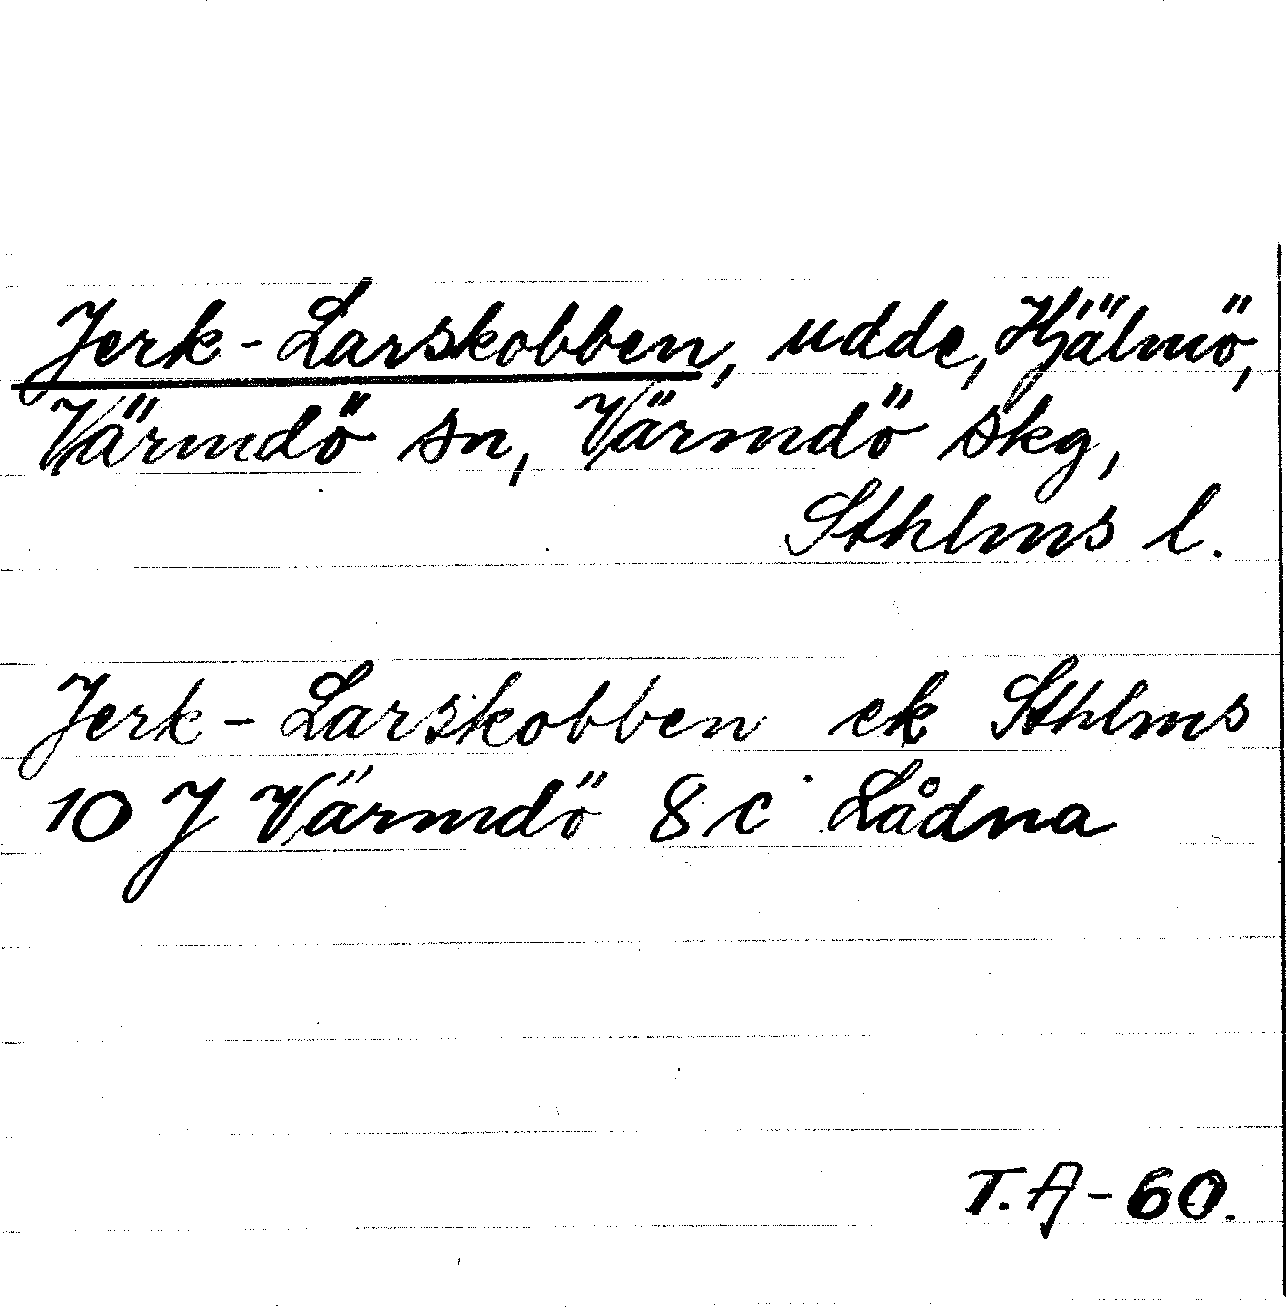 Jerk-Larskobben, udde, Hjälmö,
Värmdö sn, Värmdö skg,
Sthlms l.
Jerk-Larskobben ek Sthlms
10 J Värmdö 8 c Lådna
T. Aj-60.